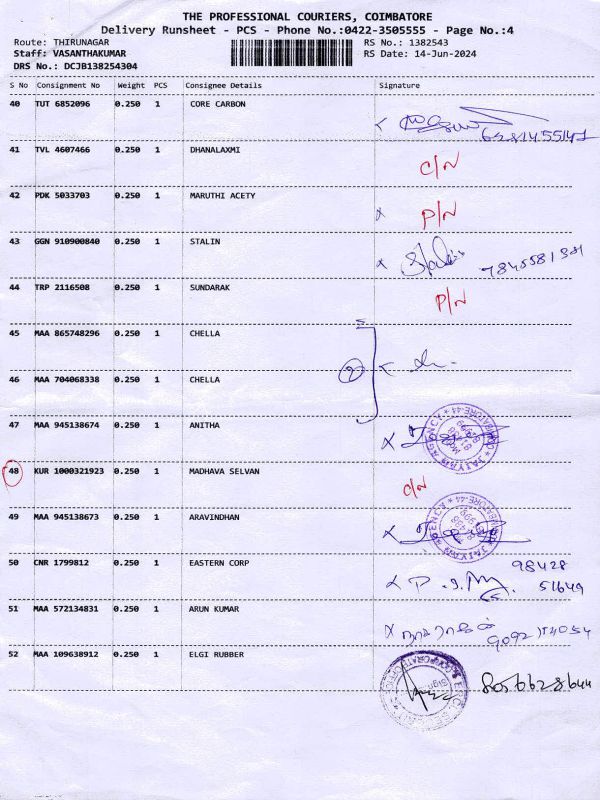 THE PROFESSIONAL COURIERS, COIMBATORE
Delivery Runsheet - PCS - Phone No.:0422-3505555 - Page No.:4
Route: THIRUNAGAR RS No.: 1382543
Staff: VASANTHAKUMAR RS Date: 14-Jun-2024
DRS No.: DCJB138254304
S No Consignment No Weight PCS Consignee Details Signature
40 TUT 6852096 0.250 1 CORE CARBON
6281455147
41 TVL 4607466 0.250 1 DHANALAXMI C/N
42 PDK 5033703 0.250 1 MARUTHI ACETY x P/N
43 GGN 910900840 0.250 1 STALIN x
44 TRP 2116508 0.250 1 SUNDARAK P/N
45 MAA 865748296 0.250 1 CHELLA
2
46 MAA 704068338 0.250 1 CHELLA
47 MAA 945138674 0.250 1 ANITHA x
48 KUR 1000321923 0.250 1 MADHAVA SELVAN C/N
49 MAA 945138673 0.250 1 ARAVINDHAN x
50 CNR 1799812 0.250 1 EASTERN CORP x 98428
51649
51 MAA 572134831 0.250 1 ARUN KUMAR x
52 MAA 109638912 0.250 1 ELGI RUBBER 8056628644